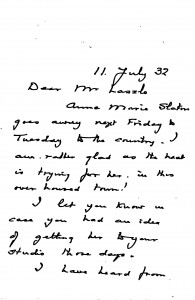 11. July 32
Dear Mr Laszlo
Anne Marie
goes away next Friday to
Tuesday to the country. I
am rather glad as the heat
is trying for her in this
over housed town!
I let you know in
case you had an idea
of getting her to your
studio those days.
I have heard from